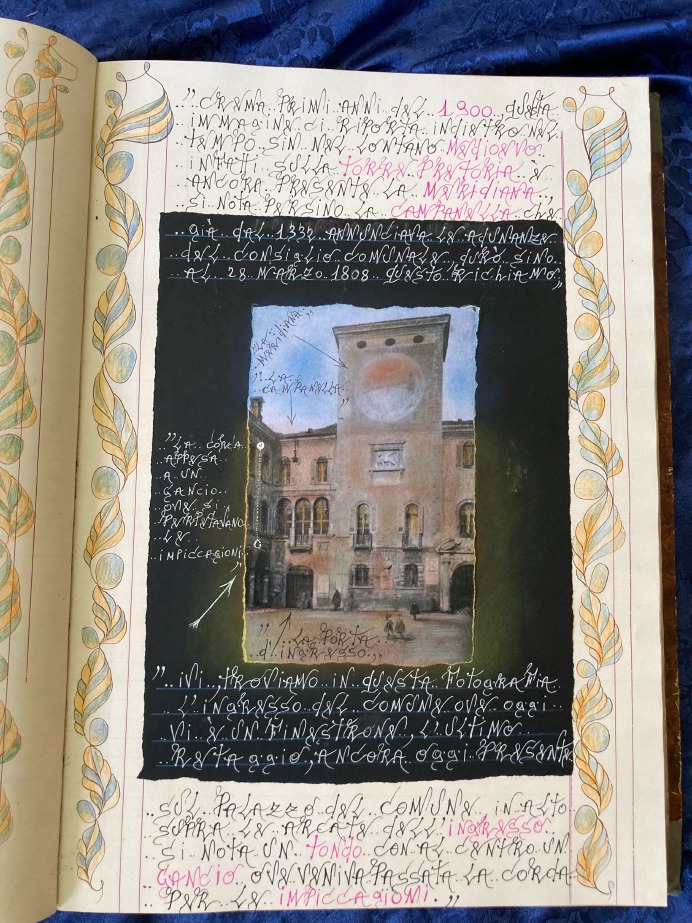 "CREMA PRIMI ANNI DEL 1900 QUESTA
IMMAGINE CI RIPORTA INDIETRO NEL
TEMPO SIN NEL LONTANO MEDIOEVO
INFATTI SULLA TORRE PRETORIA È
ANCORA PRESENTE LA MERIDIANA,
SI NOTA PERSINO LA CAMPANELLA CHE
già DAL 1332 ANNUNCIAVA LE ADUNANZE
DEL CONSIGLIO COMUNALE, DURÒ SINO
AL 28 MARZO 1808 QUESTO RICHIAMO,,
"LA MERIDIANA"
"LA CAMPANELLA"
"LA CORDA
APPESA
A UN
GANCIO
OVE SI
PERPETAVANO
LE
IMPICCAGIONI"
"LA PORTA
d'INGRESSO,,
"IVI, TROVIAMO IN QUESTA FOTOGRAFIA
L'INGRESSO DEL COMUNE OVE OGGI
VI È UN FINESTRONE, L'ULTIMO
RETAGGIO, ANCORA OGGI PRESENTE
SUL PALAZZO DEL COMUNE IN ALTO
SOPRA LE ARCATE DELL'INGRESSO
SI NOTA UN TONDO CON AL CENTRO UN
GANCIO OVE VENIVA PASSATA LA CORDA
PER LE IMPICCAGIONI."